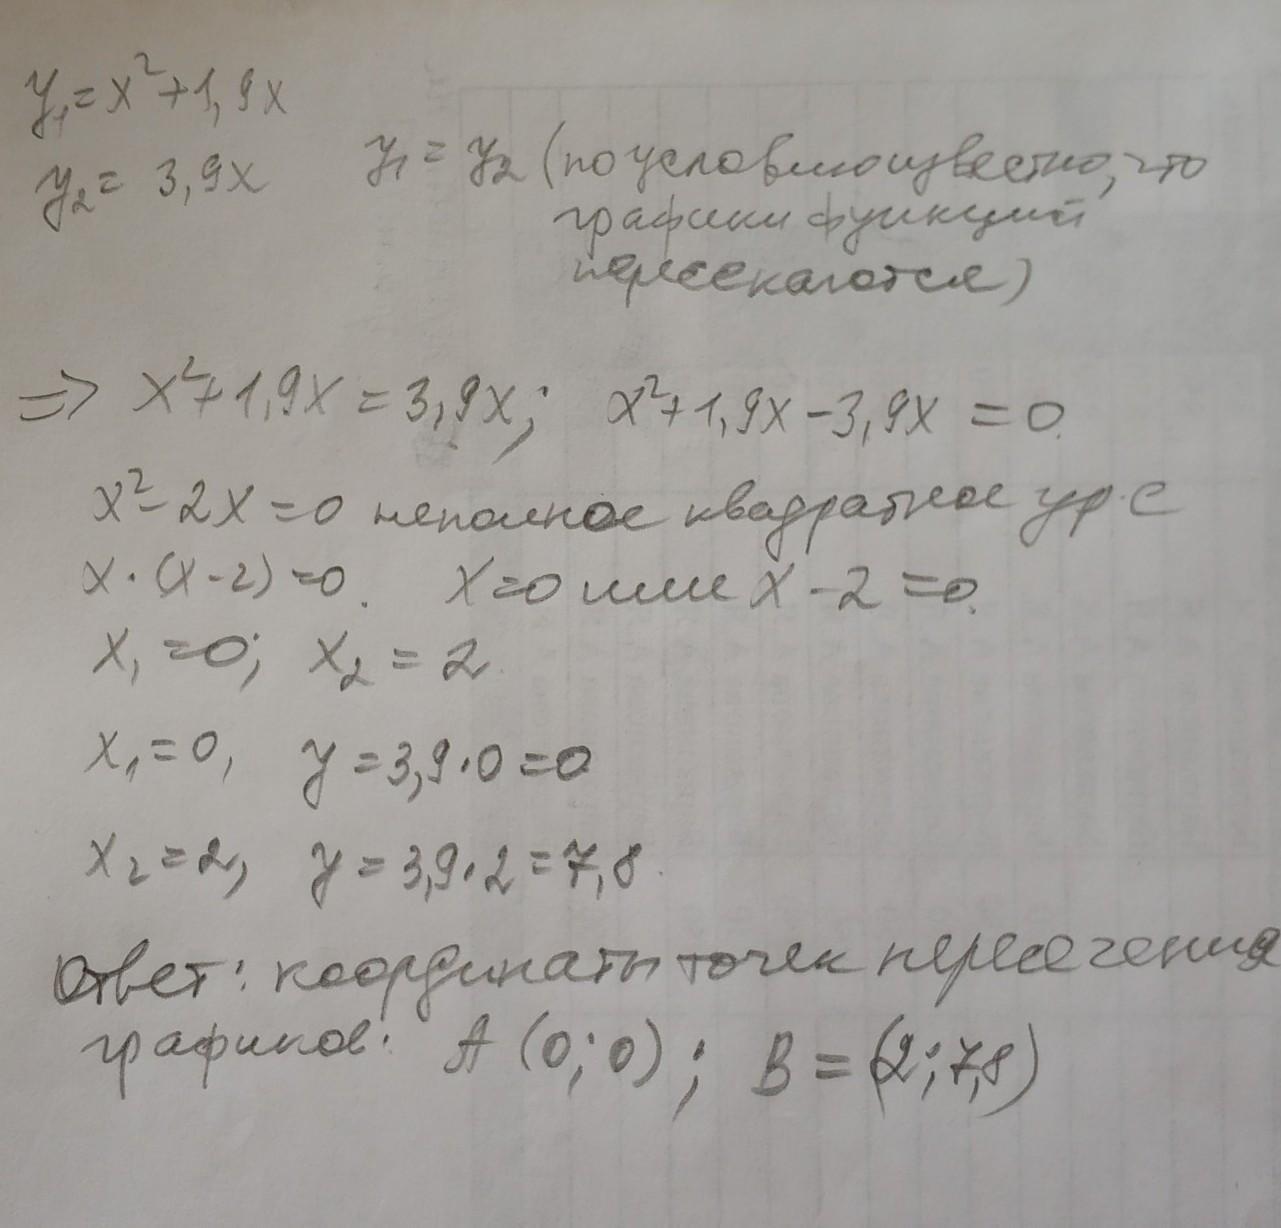 y₁ = x² + 1,9x
y₂ = 3,9x y₁ = y₂ (по условию известно, что
графики функций
пересекаются)
=> x² + 1,9x = 3,9x; x² + 1,9x - 3,9x = 0.
x² - 2x = 0 неполное квадратное ур-е
x · (x - 2) = 0. x = 0 или x - 2 = 0.
x₁ = 0; x₂ = 2.
x₁ = 0, y = 3,9 · 0 = 0
x₂ = 2, y = 3,9 · 2 = 7,8.
Ответ: координаты точек пересечения
графиков: A (0; 0); B = (2; 7,8)